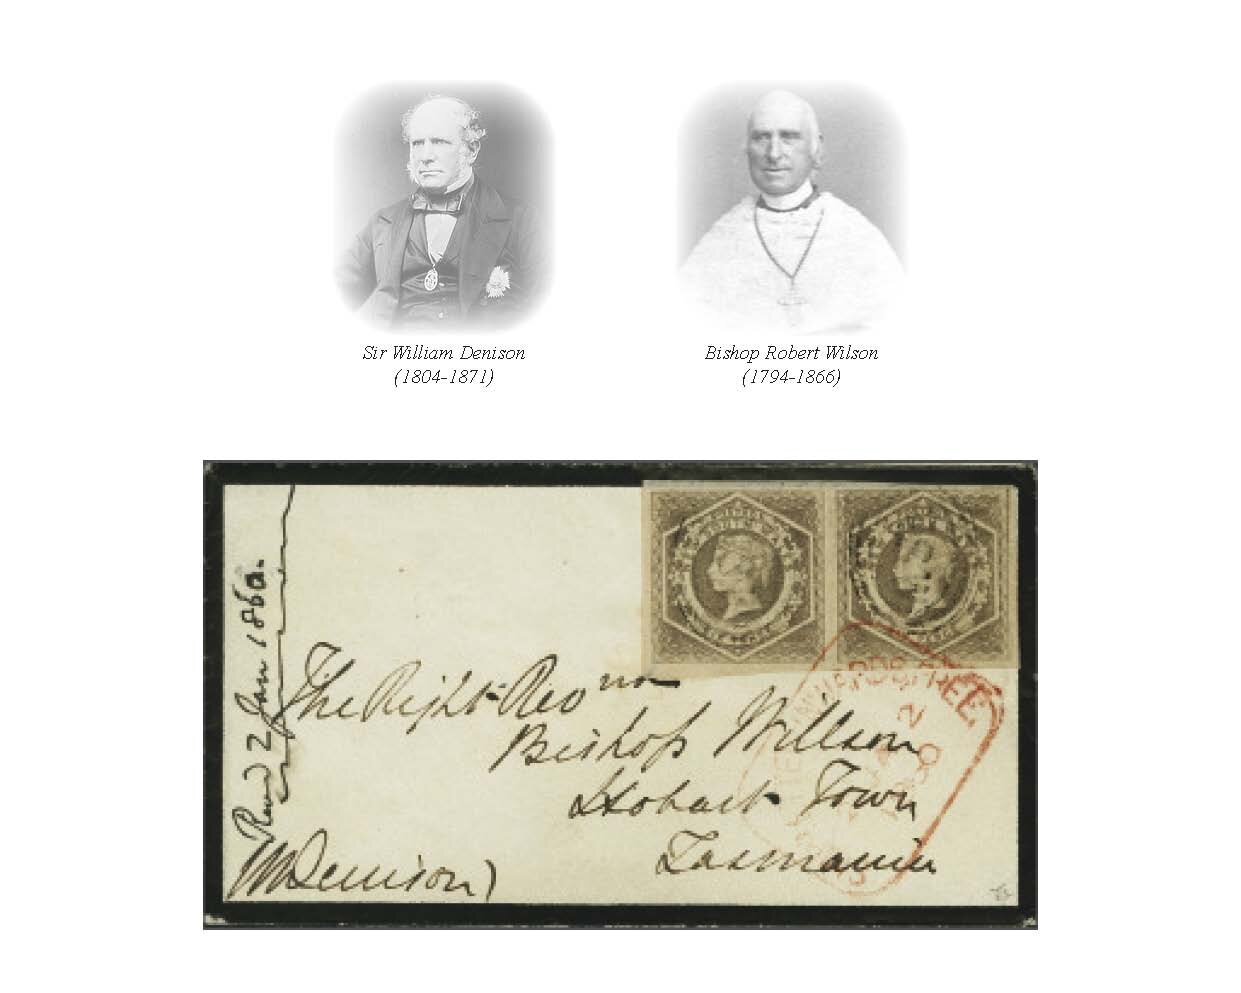 Sir William Denison
(1804-1871)
Bishop Robert Wilson
(1794-1866)
Recd 2 Jan 1860.
The Right Revd
Bishop Willson
Hobart Town
Tasmania
WDenison)
INWARDS FREE
2
JA
1860